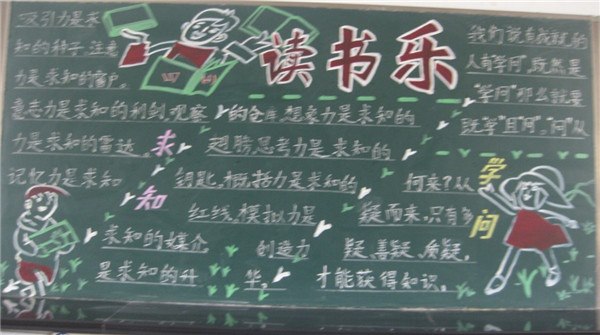 读书乐
吸引力是求
知的种子,注意
力是求知的窗户,
意志力是求知的利剑,观察
力是求知的雷达,
记忆力是求知
的仓库,想象力是求知的
翅膀,思考力是求知的
钥匙,概括力是求知的
红线,模拟力是
求知的媒介
创造力
是求知的升
华。
求知
我们说有成就的
人有学问",既然是
"学问"那么就要
既"学"且"问"。"问"从
何来?从
疑而来,只有多
疑、善疑、质疑,
才能获得知识。
学问